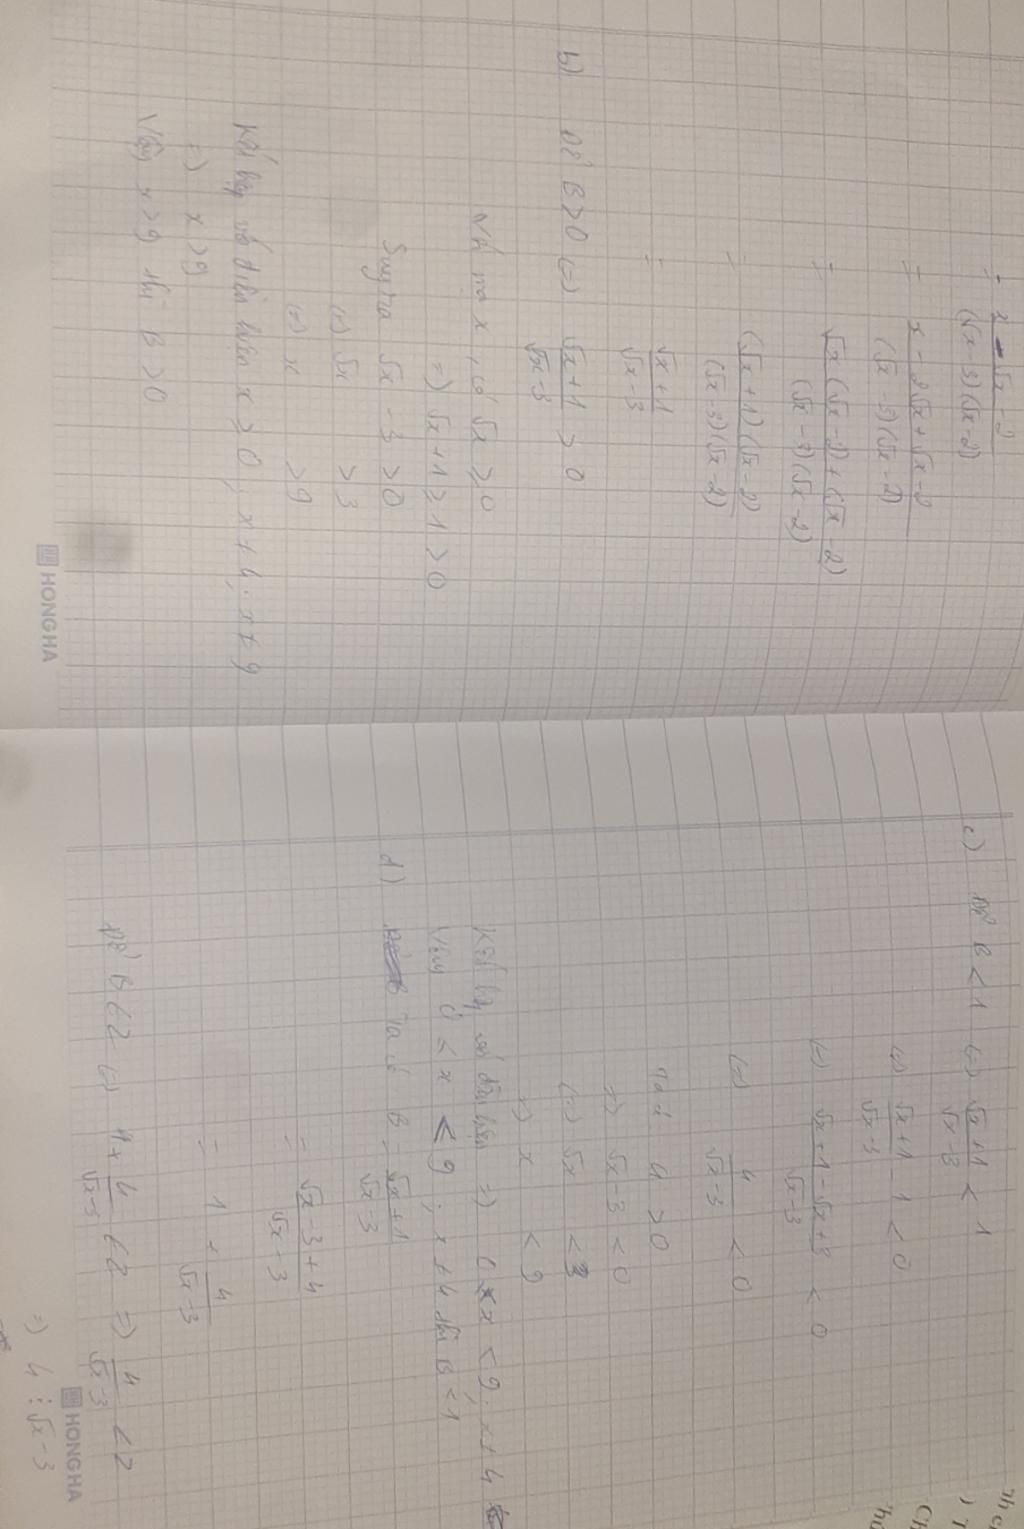 = x - √x - 2 / (√x - 3)(√x - 2)
= x - 2√x + √x - 2 / (√x - 3)(√x - 2)
= √x(√x - 2) + (√x - 2) / (√x - 3)(√x - 2)
= (√x + 1)(√x - 2) / (√x - 3)(√x - 2)
= √x + 1 / √x - 3
b) Để B > 0 (=) √x + 1 / √x - 3 > 0
x, có √x ≥ 0
=) √x + 1 ≥ 1 > 0
Suy ra √x - 3 > 0
(=) √x > 3
(=) x > 9
Kết hợp với điều kiện x ≥ 0, x ≠ 4, x ≠ 9
=) x > 9
Vậy x > 9 thì B > 0
HONG HA
c) Để B < 1 (=) √x + 1 / √x - 3 < 1
(=) √x + 1 / √x - 3 - 1 < 0
(=) √x + 1 - √x + 3 / √x - 3 < 0
(=) 4 / √x - 3 < 0
4 > 0
=) √x - 3 < 0
(=) √x < 3
=) x < 9
Kết hợp với điều kiện =) 0 ≤ x < 9; x ≠ 4
Vậy 0 ≤ x < 9; x ≠ 4 thì B < 1
d) Ta có B = √x + 1 / √x - 3
= √x - 3 + 4 / √x - 3
= 1 + 4 / √x - 3
Để B ∈ Z (=) 1 + 4 / √x - 3 ∈ Z =) 4 / √x - 3 ∈ Z
=) 4 ⋮ √x - 3
HONG HA